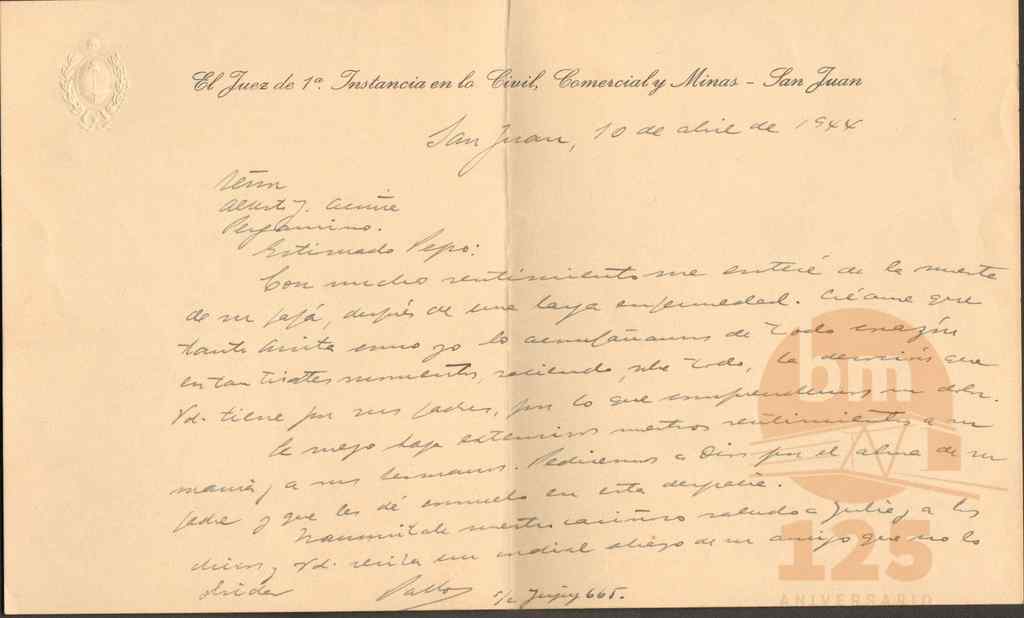 El Juez de 1ª. Instancia en lo Civil, Comercial y Minas - San Juan
San Juan, 10 de abril de 1944
Señor
Alberto J.
Pergamino.
Estimado Pepo:
Con mucho sentimiento me enteré de la muerte
de su papá, después de una larga enfermedad. Créame que
tanto Anita como yo lo acompañamos de todo corazón
en tan tristes momentos, sabiendo, sobre todo, la devoción que
Vd. tiene por sus padres, por lo que comprendemos su dolor.
Le ruego haga extensivos nuestros sentimientos a su
mamá y a sus hermanos. Pediremos a Dios por el alma de su
padre y que les dé consuelo en esta desgracia.
Transmítale nuestro cariñoso saludo a Julia, a los
chicos y Vd. reciba un cordial abrazo de su amigo que no lo
olvida
Pablo
s/c Jujuy 665.
bm
125
ANIVERSARIO